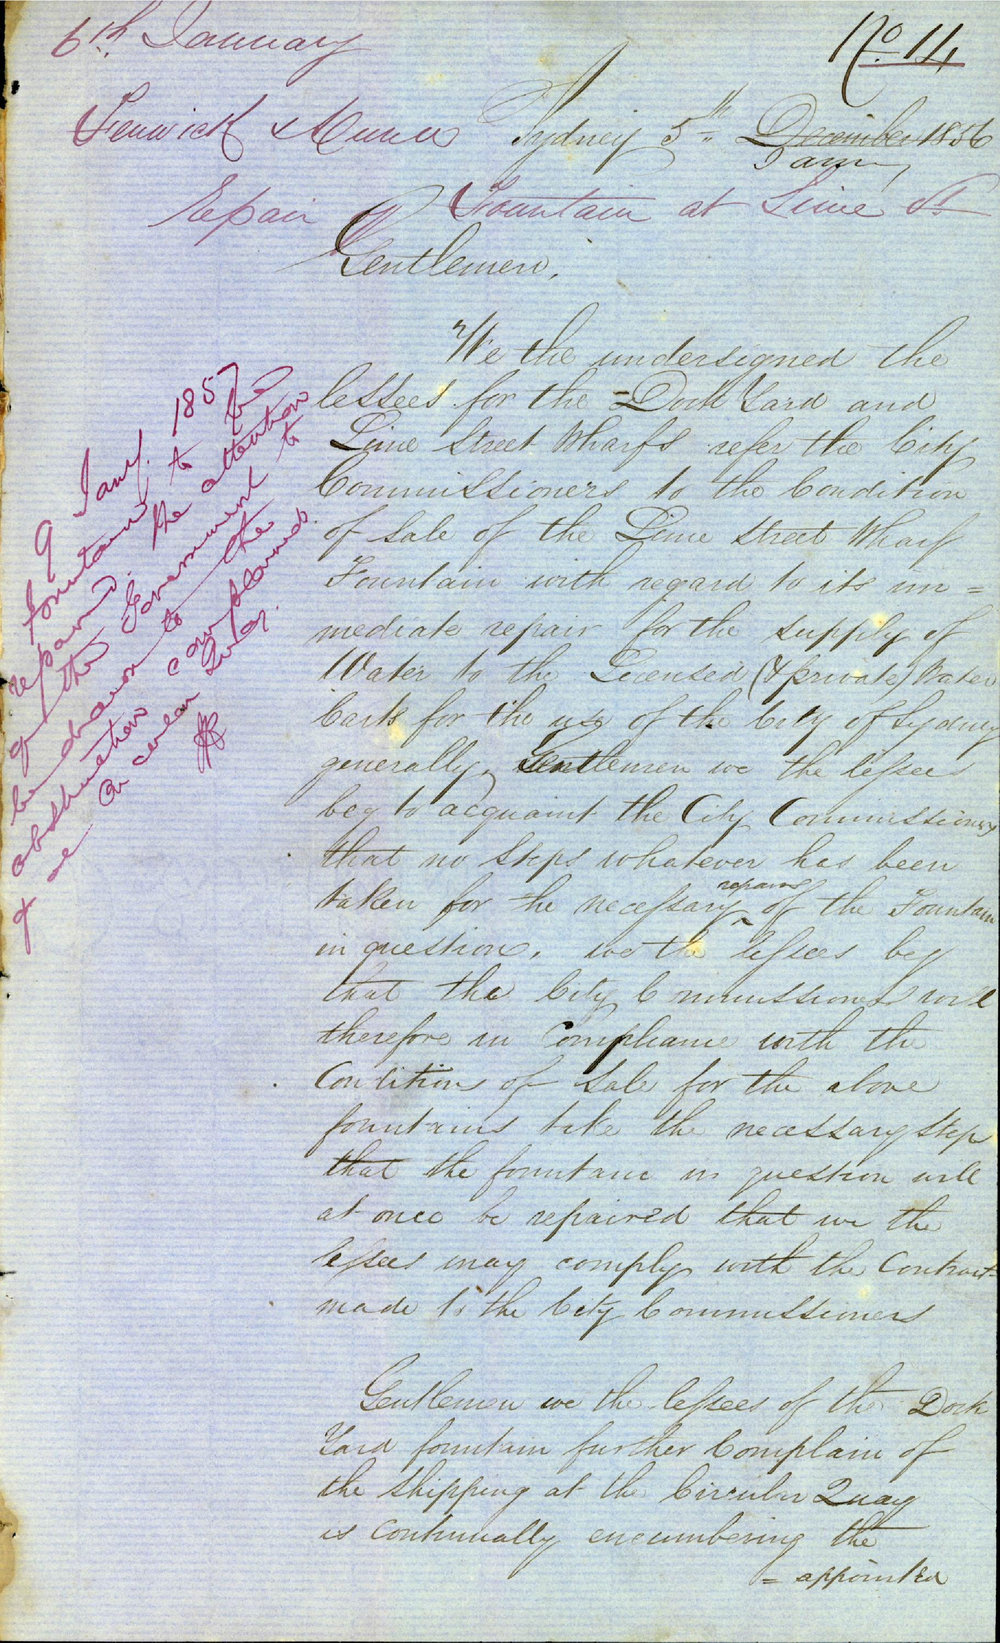 6th January
No. 14
Fenwick &
Sydney 5th December 1856
Jany
Repair Fountain at Lime St
Gentlemen,
We the undersigned the
lessees for the Dock Yard and
Lime Street Wharfs refer the City
Commissioners to the Condition
of Sale of the Lime Street Wharf
Fountain with regard to its im=
mediate repair for the supply of
Water to the Licensed (& private) Water
Carts for the use of the City of Sydney
generally, Gentlemen we the lessees
beg to acquaint the City Commissioners
that no steps whatever has been
taken for the necessary repairs of the Fountain
in question, we the lessees beg
that the City Commissioners will
therefore in Compliance with the
Conditions of Sale for the above
fountains take the necessary steps
that the fountain in question will
at once be repaired that we the
lessees may comply with the Contract
made to the City Commissioners
Gentlemen we the lessees of the Dock
Yard fountain further Complain of
the Shipping at the Circular Quay
is Continually encumbering the
= appointed
9 Jany. 1857
Fountain to be
repaired. The attention
of the Government to
be drawn to the
obstruction complained
of at Circular Quay.